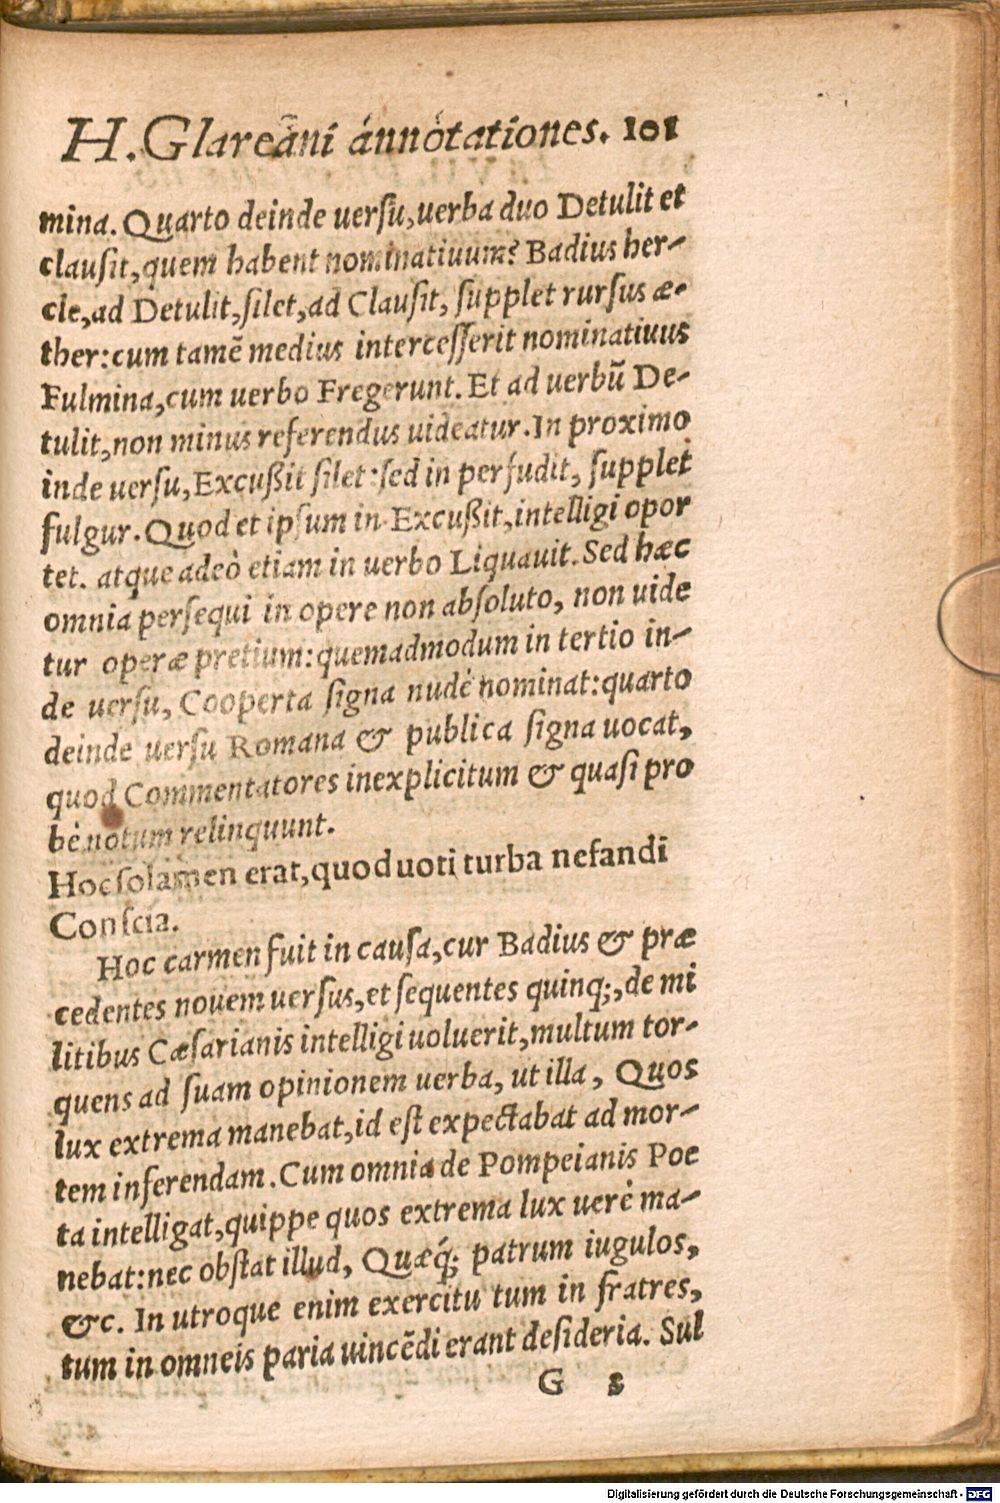 H. Glareani annotationes. 101
mina. Quarto deinde uersu, uerba duo Detulit et
clauſit, quem habent nominatiuum? Badius her-
cle, ad Detulit, ſilet, ad Clauſit, ſupplet rurſus æ-
ther: cum tamẽ medius interceſſerit nominatiuus
Fulmina, cum uerbo Fregerunt. Et ad uerbũ De-
tulit, non minus referendus uideatur. In proximo
inde uerſu, Excußit ſilet: ſed in perfudit, ſupplet
fulgur. Quod et ipſum in Excußit, intelligi opor
tet. atque adeò etiam in uerbo Liquauit. Sed hæc
omnia perſequi in opere non abſoluto, non uide
tur operæ pretium: quemadmodum in tertio in-
de uerſu, Cooperta ſigna nudè nominat: quarto
deinde uerſu Romana & publica ſigna uocat,
quod Commentatores inexplicitum & quaſi pro
bè notum relinquunt.
Hoc ſolamen erat, quod uoti turba nefandi
Conſcia.
Hoc carmen fuit in cauſa, cur Badius & præ
cedentes nouem uerſus, et ſequentes quinq;, de mi
litibus Cæſarianis intelligi uoluerit, multum tor-
quens ad ſuam opinionem uerba, ut illa, Quos
lux extrema manebat, id eſt expectabat ad mor-
tem inferendam. Cum omnia de Pompeianis Poe
ta intelligat, quippe quos extrema lux uerè ma-
nebat: nec obſtat illud, Quæq́; patrum iugulos,
&c. In utroque enim exercitu tum in fratres,
tum in omneis paria uincẽdi erant deſideria. Sul
G 5
Digitalisierung gefördert durch die Deutsche Forschungsgemeinschaft - DFG